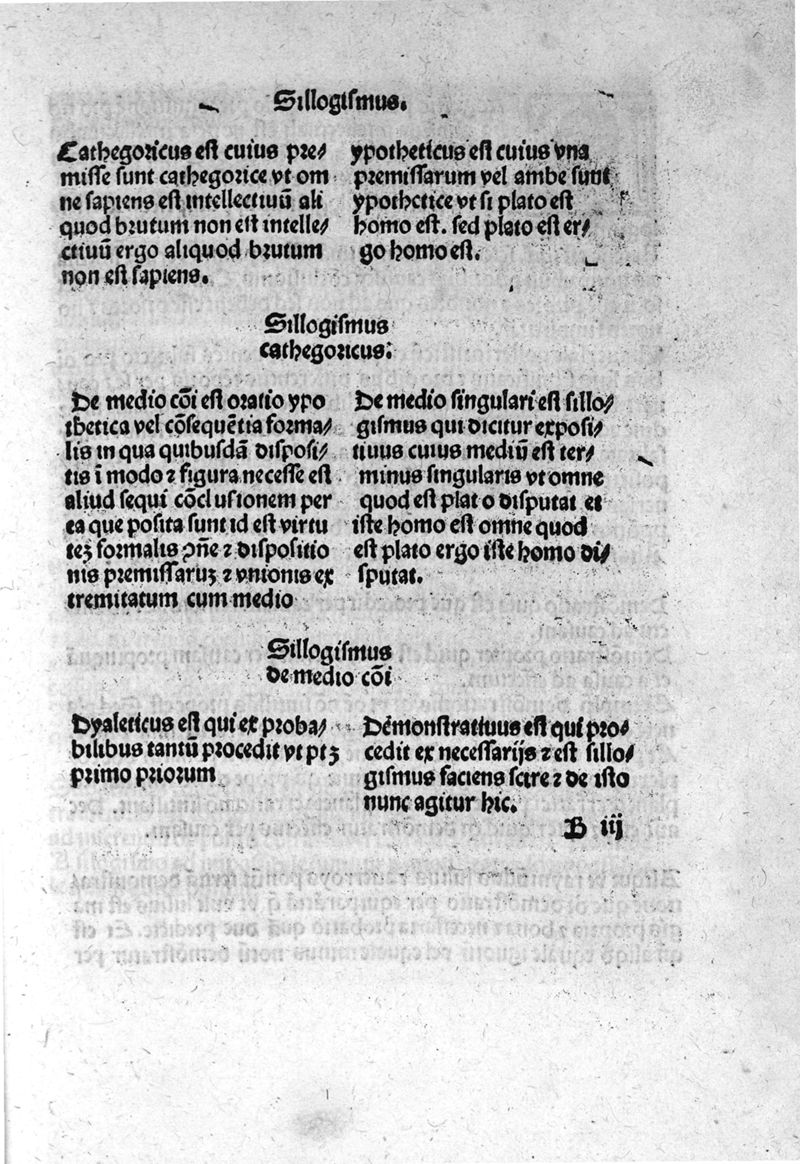 Sillogismus.
Cathegoricus est cuius pre/
misse sunt cathegorice vt om
ne sapiens est intellectiuū ali
quod brutum non est intelle/
ctiuū ergo aliquod brutum
non est sapiens.
ypotheticus est cuius vna
premissarum vel ambe sunt
ypothetice vt si plato est
homo est. sed plato est er/
go homo est.
Sillogismus
cathegoricus.
De medio cōi est oratio ypo
thetica vel cōsequētia forma/
lis in qua quibusdā disposi/
tis ī modo ⁊ figura necesse est
aliud sequi cōclusionem per
ea que posita sunt id est virtu
teꝫ formalis ꝯn̄e ⁊ dispositio
nis premissaruꝫ ⁊ vnionis ex
tremitatum cum medio
De medio singulari est sillo/
gismus qui dicitur exposi/
tiuus cuius mediū est ter/
minus singularis vt omne
quod est plato disputat et
iste homo est omne quod
est plato ergo iste homo di/
sputat.
Sillogismus
de medio cōi
Dyaleticus est qui ex proba/
bilibus tantū procedit vt ptꝫ
primo priorum
Demonstratiuus est qui pro/
cedit ex necessarijs ⁊ est sillo/
gismus faciens scire ⁊ de isto
nunc agitur hic.
B iij